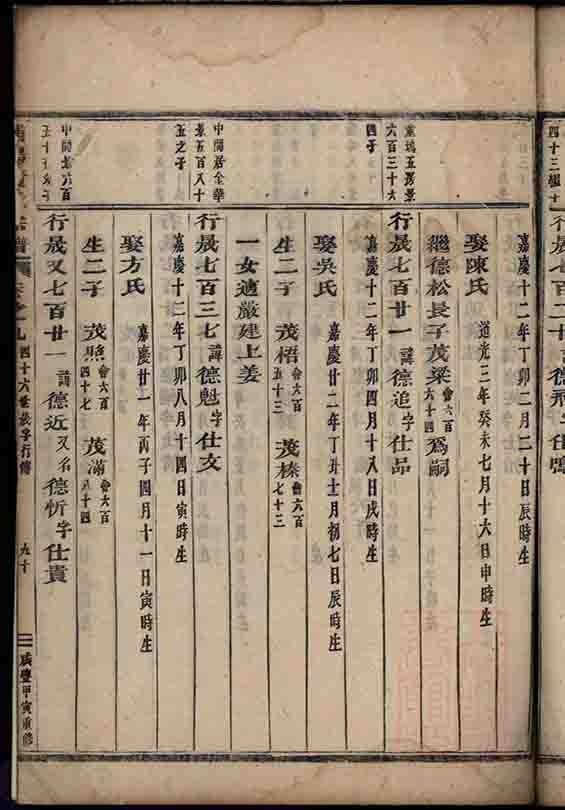 四十三縕十
嘉慶十二年丁卯二月二十日辰時生
娶陳氏 道光三年癸未七月十六日申時生
繼德松長子茂梁會六百六十四為嗣
六百三十六
四子
行晟七百廿一諱德追字仕品
嘉慶十二年丁卯四月十八日戌時生
娶吳氏 嘉慶廿二年丁丑十二月初七日辰時生
生二子 茂梧會六百五十三 茂榛會六百七十三
一女適嚴建上姜
中開居金華
景五百八十
五之子
行晟七百三七諱德魁字仕文
嘉慶十二年丁卯八月十四日寅時生
娶方氏 嘉慶廿一年丙子四月十一日寅時生
生二子 茂照會六百四十七 茂滿會六百八十四
中開景六百
行晟又七百廿一諱德近又名德忻字仕貴
四十六世晟字行傳
九十
咸豐甲寅重修